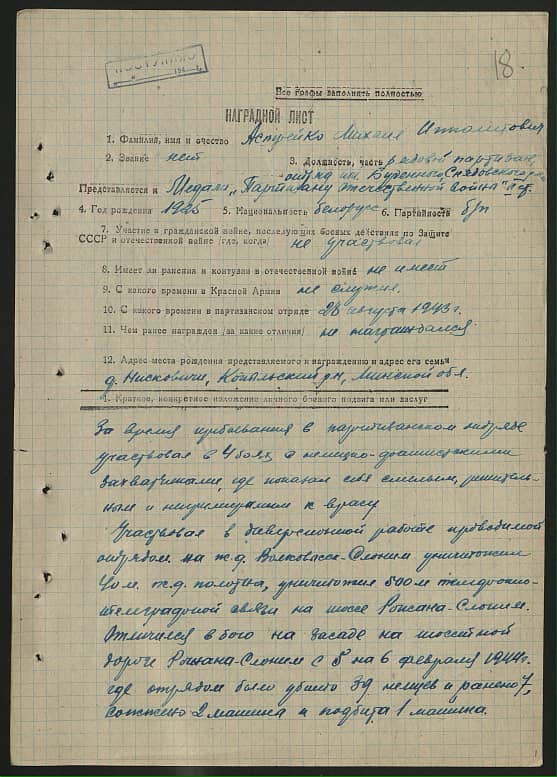 ПОСТУПИЛО
194
18.
Все графы заполнять полностью
НАГРАДНОЙ ЛИСТ
1. Фамилия, имя и очество Аспрейко Михаил Ипполитович
2. Звание нет 3. Должность, часть рядовой партизан,
отряд им. Буденного, Слуцкого
Представляется к Медали „Партизану отечественной война" 2 ст
4. Год рождения 1925 5. Национальность белорус 6. Партийность б/п
7. Участие в гражданской войне, последующих боевых действиях по Защите
СССР и отечественной войне /где, когда/ не участвовал
8. Имеет ли ранения и контузии в отечественной войне не имеет
9. С какого времени в Красной Армии не служил.
10. С какого времени в партизанском отряде 28 августа 1943 г.
11. Чем ранее награжден /за какие отличия/ не награждался
12. Адрес места рождения представляемого к награждению и адрес его семьи
д. Нисковичи, Копыльский р-н, Минской обл.
1. Краткое, конкретное изложение личного боевого подвига или заслуг
За время пребывания в партизанском отряде
участвовал в 4 боях с немецко-фашистскими
захватчиками, где показал себя смелым, решитель-
ным и непримиримым к врагу
Участвовал в диверсионной работе проводимой
отрядом. на ж.д. Волковыск-Слоним уничтожил
40 м. ж.д. полотна, уничтожил 500 м телефонно-
телеграфной связи на шоссе Рожана-Слоним.
Отличился в бою на засаде на шоссейной
дороге Рожана-Слоним с 5 на 6 февраля 1944 г.
где отрядом было убито 39 немцев и ранено 7,
сожжено 2 машина и подбита 1 машина.